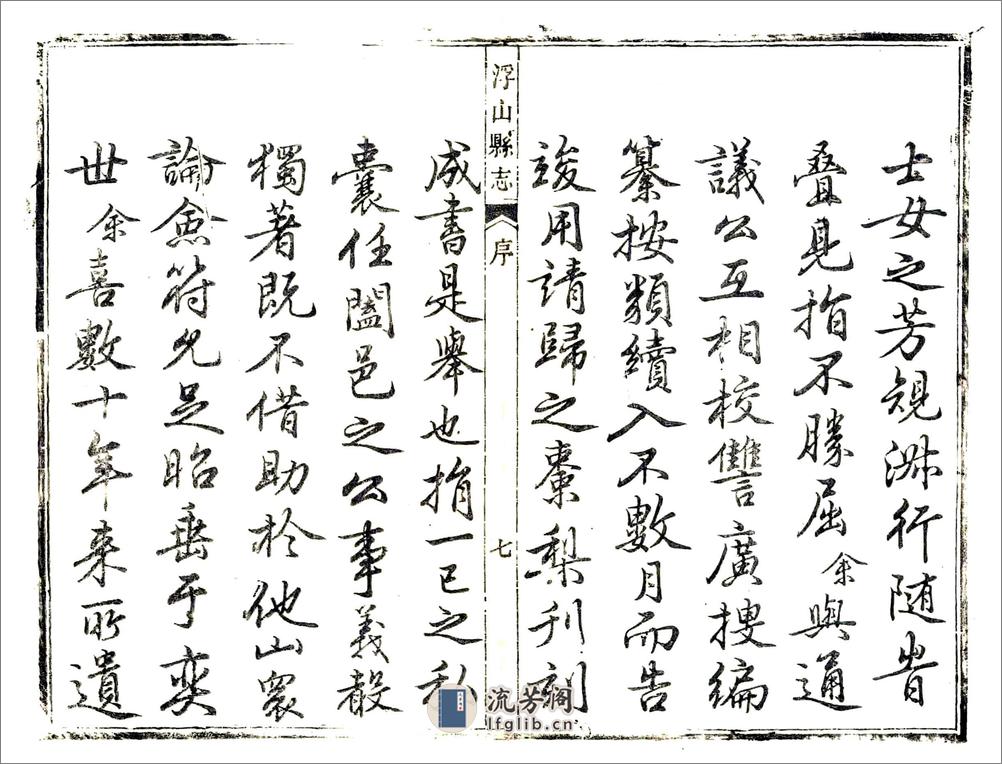 士女之芳規淋行随時
疊見指不勝屈余與通
議公互相校讐廣搜編
纂按類續入不數月而告
竣用請歸之棗梨刊刻
浮山縣志
序
七
成書是舉也捐一己之私
囊任闔邑之公事義聲
獨著既不借助於他山衆
論僉符允足昭垂于奕
世余喜數十年来所遺
流芳阁
lfglib.cn